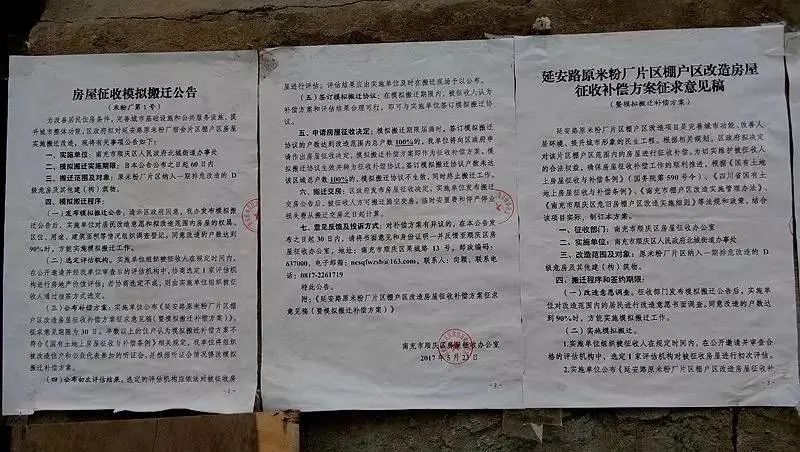 房屋征收模拟搬迁公告
（米粉厂第1号）
为改善居民住房条件，完善城市基础设施和公共服务设施，提
升城市整体功能，区政府拟对延安路原米粉厂宿舍片区棚户区房屋
实施搬迁改造，现将有关事项公告如下：
一、实施单位：南充市顺庆区人民政府北城街道办事处
二、模拟搬迁实施期限：自本公告公布之日起60日内
三、搬迁范围及对象：原米粉厂片区纳入一期拆危改造的D
级危房及其他建（构）筑物。
四、模拟搬迁程序：
（一）发布模拟搬迁公告。请示区政府同意，我办发布模拟搬
迁公告后，实施单位对居民改造意愿和拟改造范围内房屋的权属、
区位、用途、建筑面积等情况组织调查登记。同意改造的户数达到
90%时，方能实施模拟搬迁工作。
（二）选定评估机构。实施单位组织被征收人在规定时间内，
在公开邀请并经改单位审查后的评估机构中，协商选定1家评估机
构进行房地产价值评估；若协商选定不成，则由实施单位组织被征
收人通过抽签方式选定。
（三）公布补偿方案：实施单位公布《延安路原米粉厂片区棚
户区改造房屋征收补偿方案征求意见稿（暨模拟搬迁补偿方案）》，
征求意见期限为30日。半数以上的住户认为模拟搬迁补偿方案不
符合《国有土地上房屋征收与补偿条例》相关规定，我单位将组织
被改造住户和公众代表参加的听证会，并根据听证会情况修改模拟
搬迁补偿方案。
（四）公布初次评估结果。选定的评估机构应依法对被征收房
-1-
屋进行评估。评估结果应由实施单位及时在搬迁现场予以公布。
（五）签订模拟搬迁协议：在模拟搬迁期限内，被征收人认为
补偿方案和评估结果合理可行，即可与实施单位签订模拟搬迁协
议。
五、申请房屋征收决定：模拟搬迁期限届满时，签订模拟搬迁
协议的户数达到改造范围内总户数100%的，我单位将向区政府申
请作出房屋征收决定，模拟搬迁补偿方案即作为征收补偿方案，模
拟搬迁协议生效并转为征收补偿协议。签订模拟搬迁协议户数未达
该区域总户数100%的，模拟搬迁协议不生效，同时终止搬迁工作。
六、搬迁交房：区政府发布房屋征收决定，实施单位发布搬迁
交房公告后，被征收人方可搬迁腾空交房。临时安置费和停产停业
损失费从搬迁交房之日起计算。
七、意见反馈及投诉方式：对补偿方案有异议的，在本公告发
布之日起30日内，请将书面意见和身份证明一并反馈至顺庆区房
屋征收办公室，地址：南充市顺庆区果城路13号，邮政编码：
637000，电子邮箱：ncsqfwzsb@163.com，联系人：向微，联系电
话：0817-2261719
特此公告。
附：《延安路原米粉厂片区棚户区改造房屋征收补偿方案征求
意见稿（暨模拟搬迁补偿方案）》
南充市顺庆区房屋征收办公室
2017年5月23日
-2-
延安路原米粉厂片区棚户区改造房屋
征收补偿方案征求意见稿
（暨模拟搬迁补偿方案）
延安路原米粉厂片区棚户区改造项目是完善城市功能、改善人
居环境、提升城市形象的民生工程。根据相关规划，区政府拟决定
对该片区棚户区范围内的房屋进行征收补偿。为切实维护被征收人
的合法权益，确保房屋征收补偿工作的顺利推进，根据《国有土地
上房屋征收与补偿条例》（国务院第590号令）、《四川省国有土
地上房屋征收与补偿条例》、《南充市棚户区改造实施管理办法》、
《南充市顺庆区危旧房棚户区改造实施细则》等法规和政策，结合
该项目实际，制订本方案。
一、征收部门：南充市顺庆区房屋征收办公室
二、实施单位：南充市顺庆区人民政府北城街道办事处
三、改造范围及对象：原米粉厂片区纳入一期拆危改造的D
级危房及其他建（构）筑物。
四、搬迁程序和签约期限：
（一）改造意愿调查。征收部门发布模拟搬迁公告后，实施单
位对改造范围内的居民进行改造意愿书面调查。同意改造的户数达
到90%时，方能实施模拟搬迁工作。
（二）实施模拟搬迁。
1.实施单位组织被征收人在规定时间内，在公开邀请并审查合
格的评估机构中，选定1家评估机构对被征收房屋进行初次评估。
2.实施单位公布《延安路原米粉厂片区棚户区改造房屋征收补
-3-